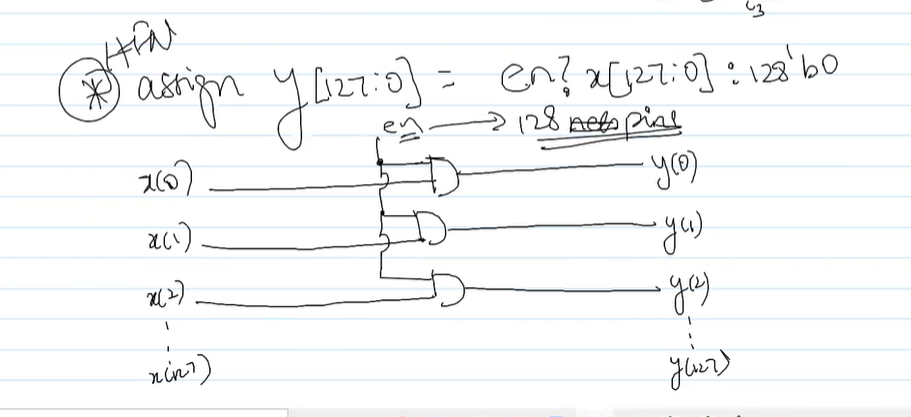 C3
HFN
* assign y[127:0] = en? x[127:0] : 128'b0
en → 128 nets pins
x(0) y(0)
x(1) y(1)
x(2) y(2)
x(127) y(127)